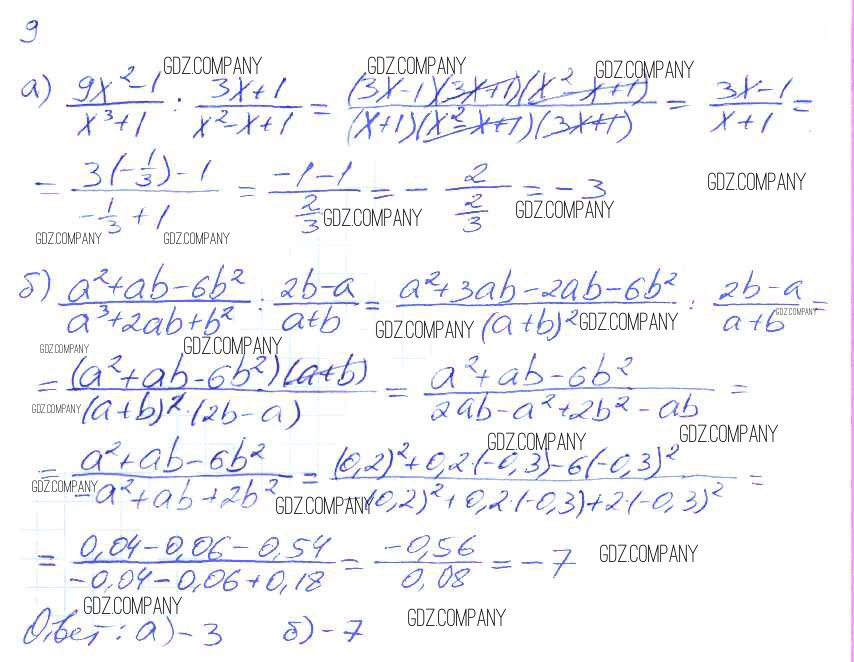 9
GDZ.COMPANY GDZ.COMPANY GDZ.COMPANY
а) (9x²-1)/(x³+1) : (3x+1)/(x²-x+1) = ((3x-1)(3x+1)(x²-x+1))/((x+1)(x²-x+1)(3x+1)) = (3x-1)/(x+1) =
= (3(-1/3)-1)/(-1/3+1) = (-1-1)/(2/3) = - 2/(2/3) = -3 GDZ.COMPANY
GDZ.COMPANY GDZ.COMPANY
GDZ.COMPANY GDZ.COMPANY
б) (a²+ab-6b²)/(a³+2ab+b²) : (2b-a)/(a+b) = (a²+3ab-2ab-6b²)/((a+b)²) : (2b-a)/(a+b) =
GDZ.COMPANY GDZ.COMPANY GDZ.COMPANY
GDZ.COMPANY GDZ.COMPANY
= ((a²+ab-6b²)(a+b))/((a+b)²·(2b-a)) = (a²+ab-6b²)/(2ab-a²+2b²-ab) =
GDZ.COMPANY
GDZ.COMPANY GDZ.COMPANY
= (a²+ab-6b²)/(-a²+ab+2b²) = ((0,2)²+0,2·(-0,3)-6(-0,3)²)/(-(0,2)²+0,2·(-0,3)+2·(-0,3)²) =
GDZ.COMPANY GDZ.COMPANY
= (0,04-0,06-0,54)/(-0,04-0,06+0,18) = (-0,56)/(0,08) = -7 GDZ.COMPANY
GDZ.COMPANY GDZ.COMPANY
Ответ: а) -3 б) -7